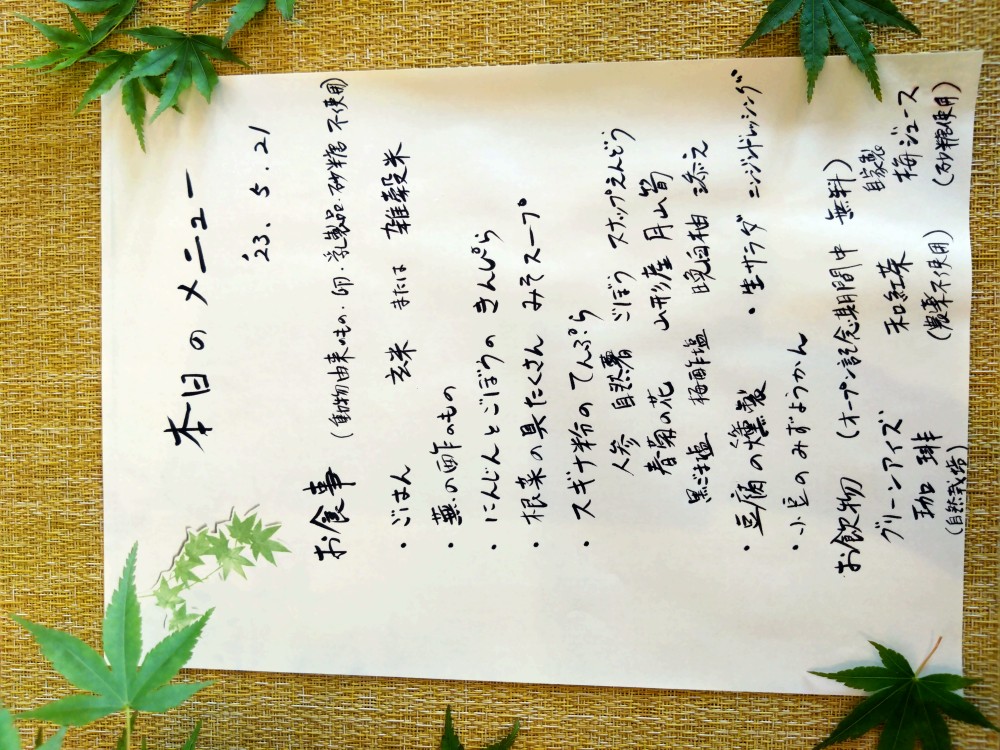 本日のメニュー
'23.5.21
お食事 (動物由来のもの・卵・乳製品・砂糖 不使用)
・ごはん 玄米 または 雑穀米
・蕪の酢のもの
・にんじんとごぼうの きんぴら
・根菜の具たくさん みそスープ
・スギナ粉のてんぷら
人参 自然薯 ごぼう スナップえんどう
春菊の花 山形産 月山筍
黒ごま塩 梅酢塩 晩白柚 添え
・豆腐の燻製 ・生サラダ ニンジンドレッシング
・小豆のみずようかん
お飲物 (オープン記念期間中 無料)
グリーンアイズ 和紅茶 自家製
珈琲 (農薬不使用) 梅ジュース
(自然栽培) (砂糖使用)